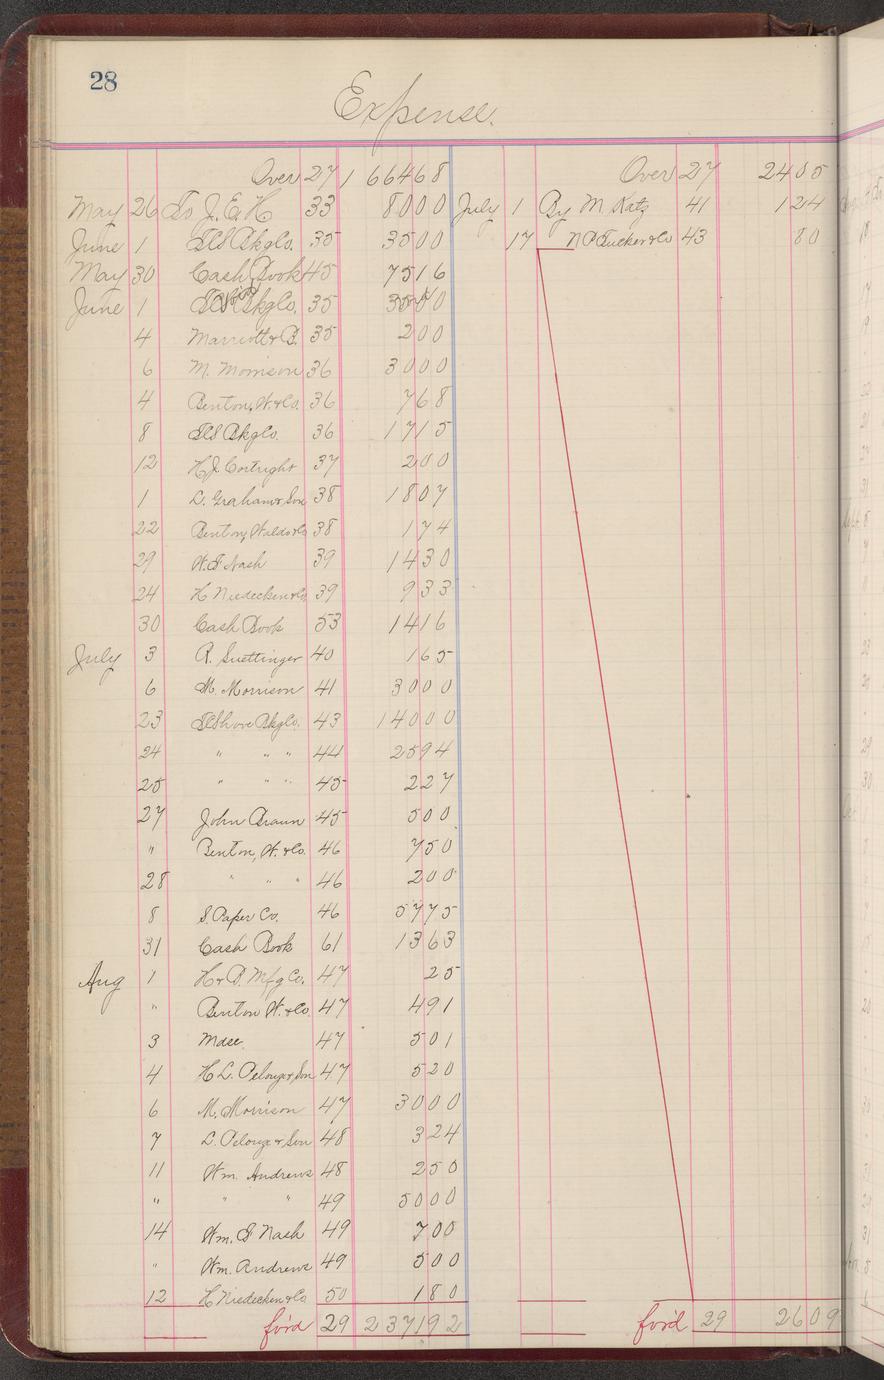 28
Expense.
Over 27 1 664 68
May 26 To J. E. H 33 80 00
June 1 35 35 00
May 30 Cash Book 45 75 16
June 1 35 35 00
Void
4 Marriott & B. 35 2 00
6 M. Morrison 36 30 00
4 Benton, W. & Co. 36 7 68
8 36 17 15
12 H. J. Cortright 37 2 00
1 L. Graham & Son 38 18 07
22 Benton, Waldo & Co 38 1 74
29 W. F. Nash 39 14 30
24 H Niedecken & Co 39 9 33
30 Cash Book 53 14 16
July 3 R. Suettinger 40 1 65
6 M. Morrison 41 30 00
23 43 140 00
24 " " " 44 25 94
25 " " " 45 2 27
27 John Braun 45 5 00
" Benton, W. & Co. 46 7 50
28 " " " 46 2 00
8 S. Paper Co. 46 57 75
31 Cash Book 61 13 63
Aug 1 H & P. Mfg Co. 47 25
" Benton W. & Co. 47 4 91
3 Mdse. 47 5 01
4 H L. Pelouze & Son 47 5 20
6 M. Morrison 47 30 00
7 L. Pelouze & Son 48 3 24
11 Wm. Andrews 48 2 50
" " " 49 50 00
14 Wm. F Nash 49 7 00
" Wm. Andrews 49 5 00
12 H Niedecken & Co 50 1 80
for'd 29 2 371 92
Over 27 24 05
July 1 By M. Katz 41 1 24
17 N P Tucker & Co 43 80
for'd 29 26 09